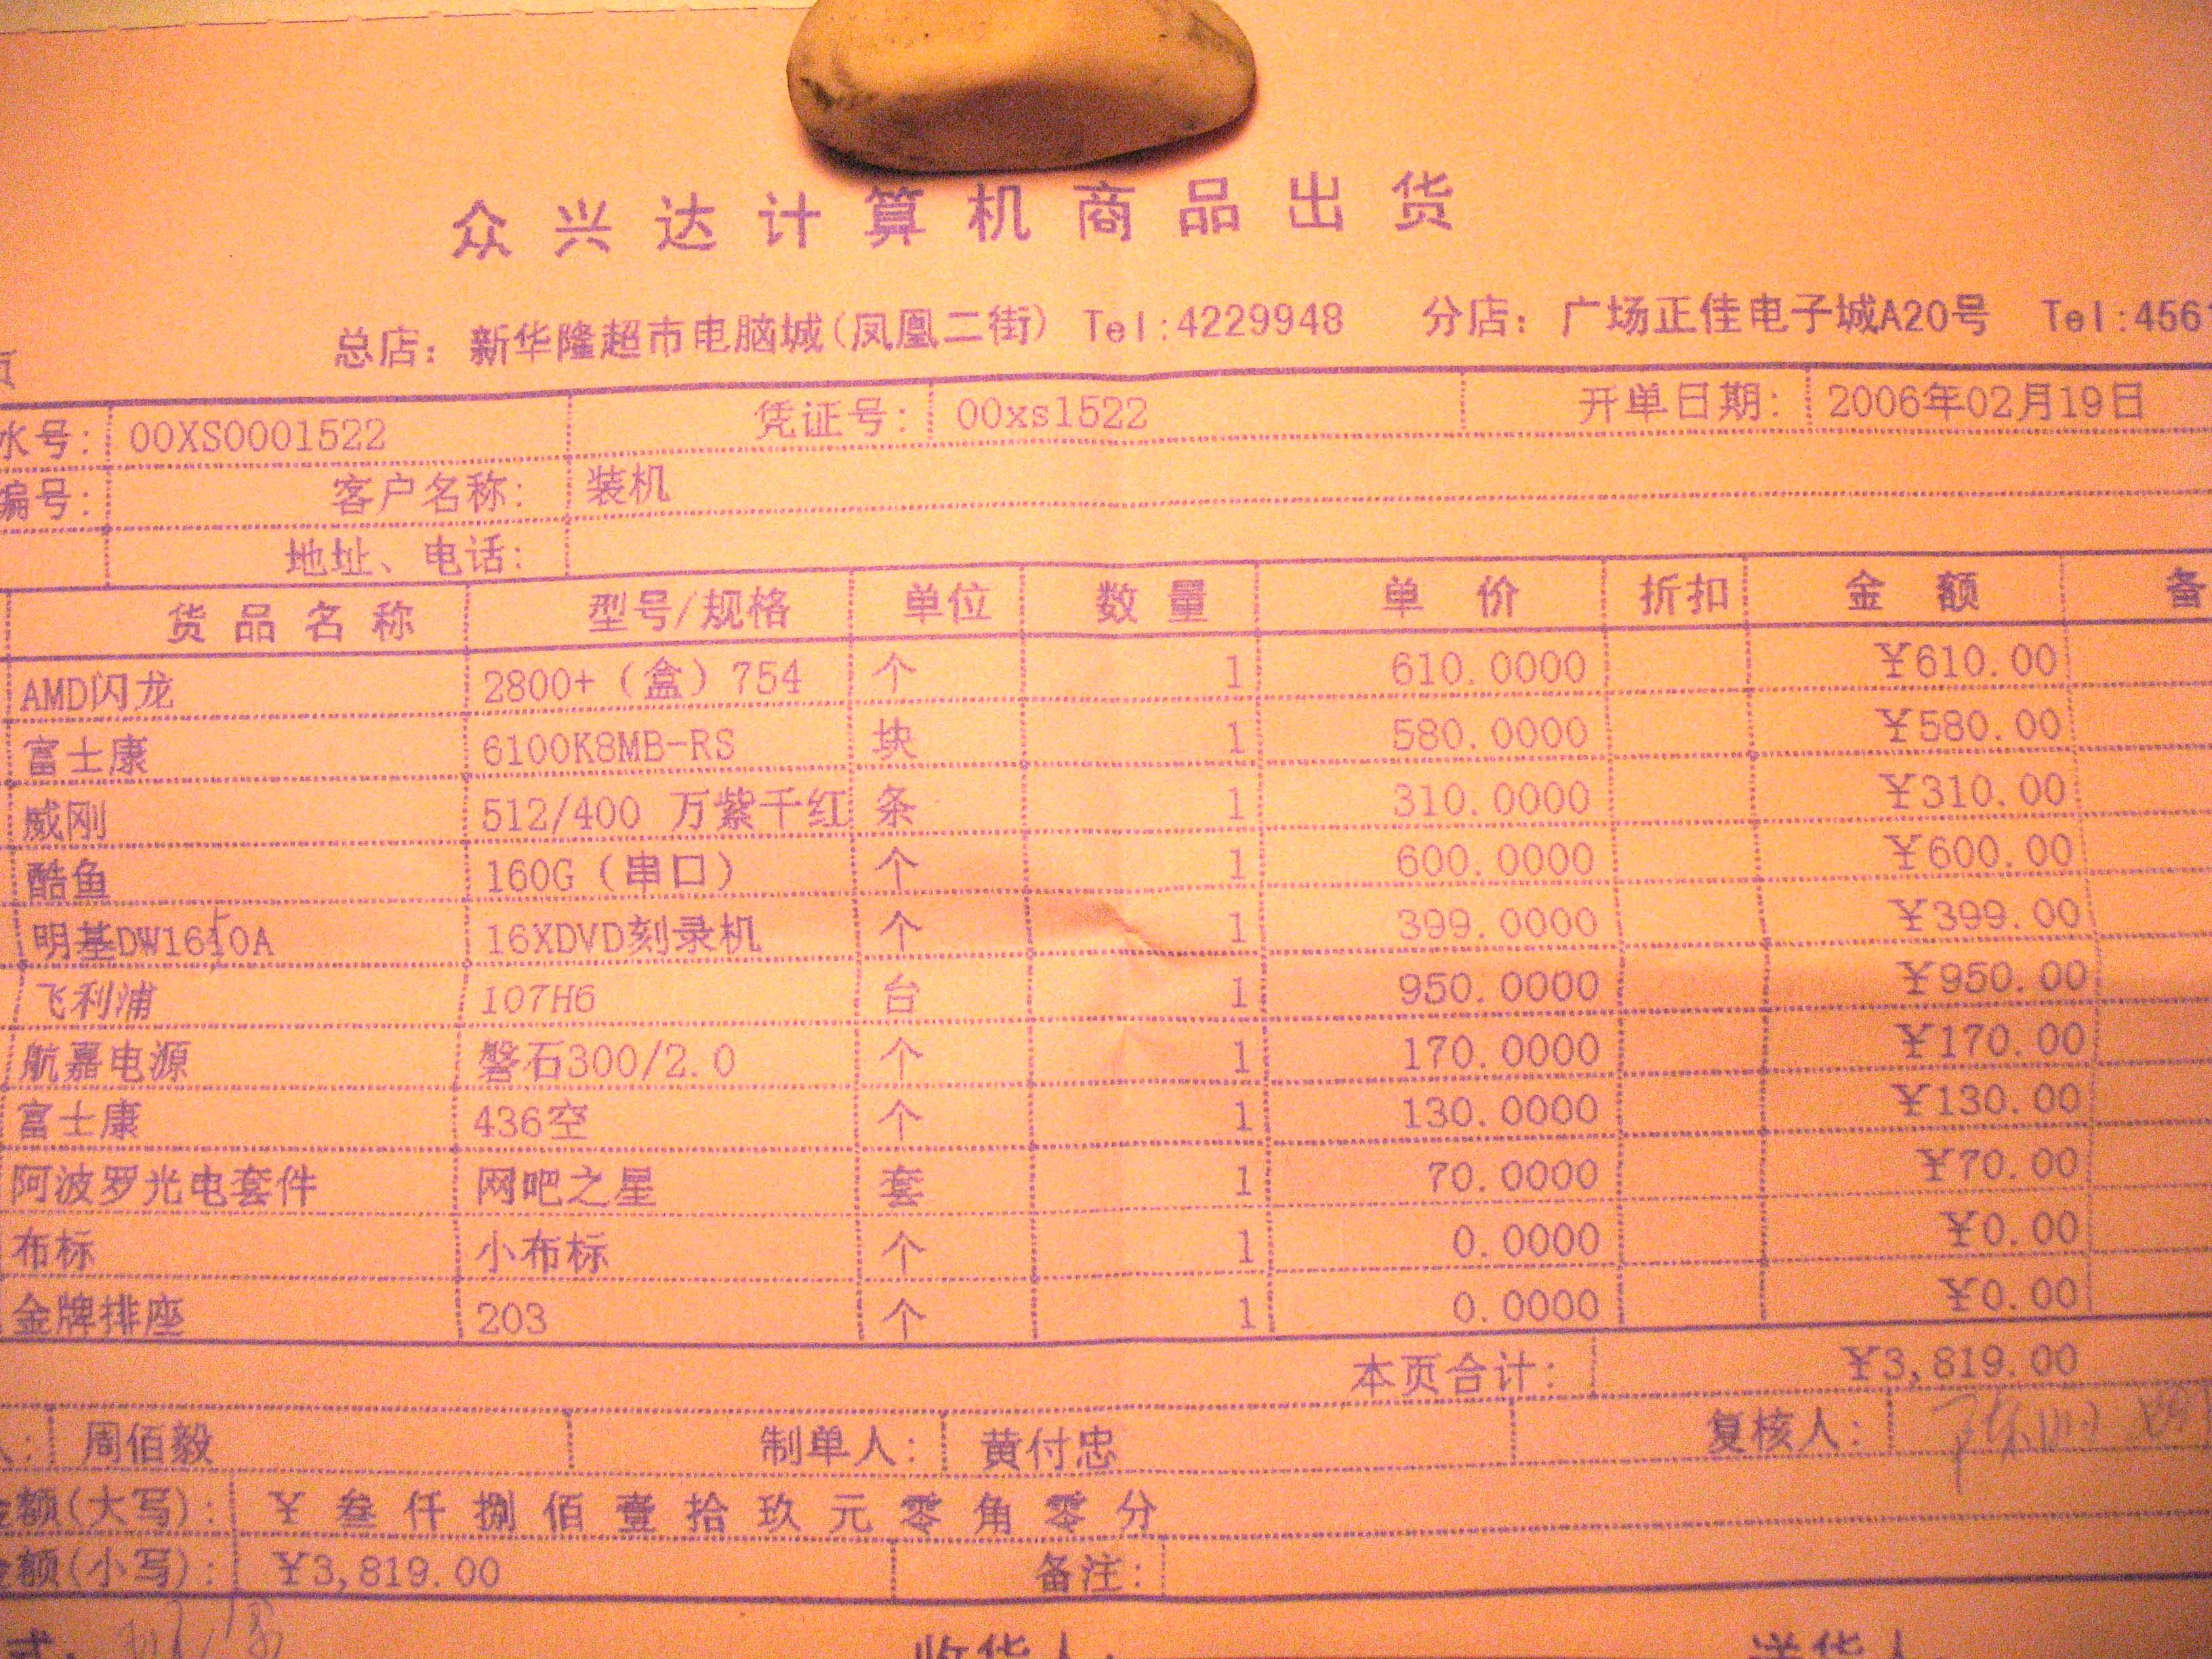 众兴达计算机商品出货
总店: 新华隆超市电脑城(凤凰二街) Tel:4229948 分店: 广场正佳电子城A20号 Tel:456
页
水号: 00XS0001522 凭证号: 00xs1522 开单日期: 2006年02月19日
编号: 客户名称: 装机
地址、电话:
货品名称 型号/规格 单位 数量 单价 折扣 金额 备
AMD闪龙 2800+(盒)754 个 1 610.0000 ¥610.00
富士康 6100K8MB-RS 块 1 580.0000 ¥580.00
威刚 512/400 万紫千红 条 1 310.0000 ¥310.00
酷鱼 160G(串口) 个 1 600.0000 ¥600.00
明基DW1610A 16XDVD刻录机 个 1 399.0000 ¥399.00
飞利浦 107H6 台 1 950.0000 ¥950.00
航嘉电源 磐石300/2.0 个 1 170.0000 ¥170.00
富士康 436空 个 1 130.0000 ¥130.00
阿波罗光电套件 网吧之星 套 1 70.0000 ¥70.00
布标 小布标 个 1 0.0000 ¥0.00
金牌排座 203 个 1 0.0000 ¥0.00
本页合计: ¥3,819.00
人: 周佰毅 制单人: 黄付忠 复核人:
金额(大写): ¥ 叁仟捌佰壹拾玖元零角零分
金额(小写): ¥3,819.00 备注:
式: 收货人: 送货人